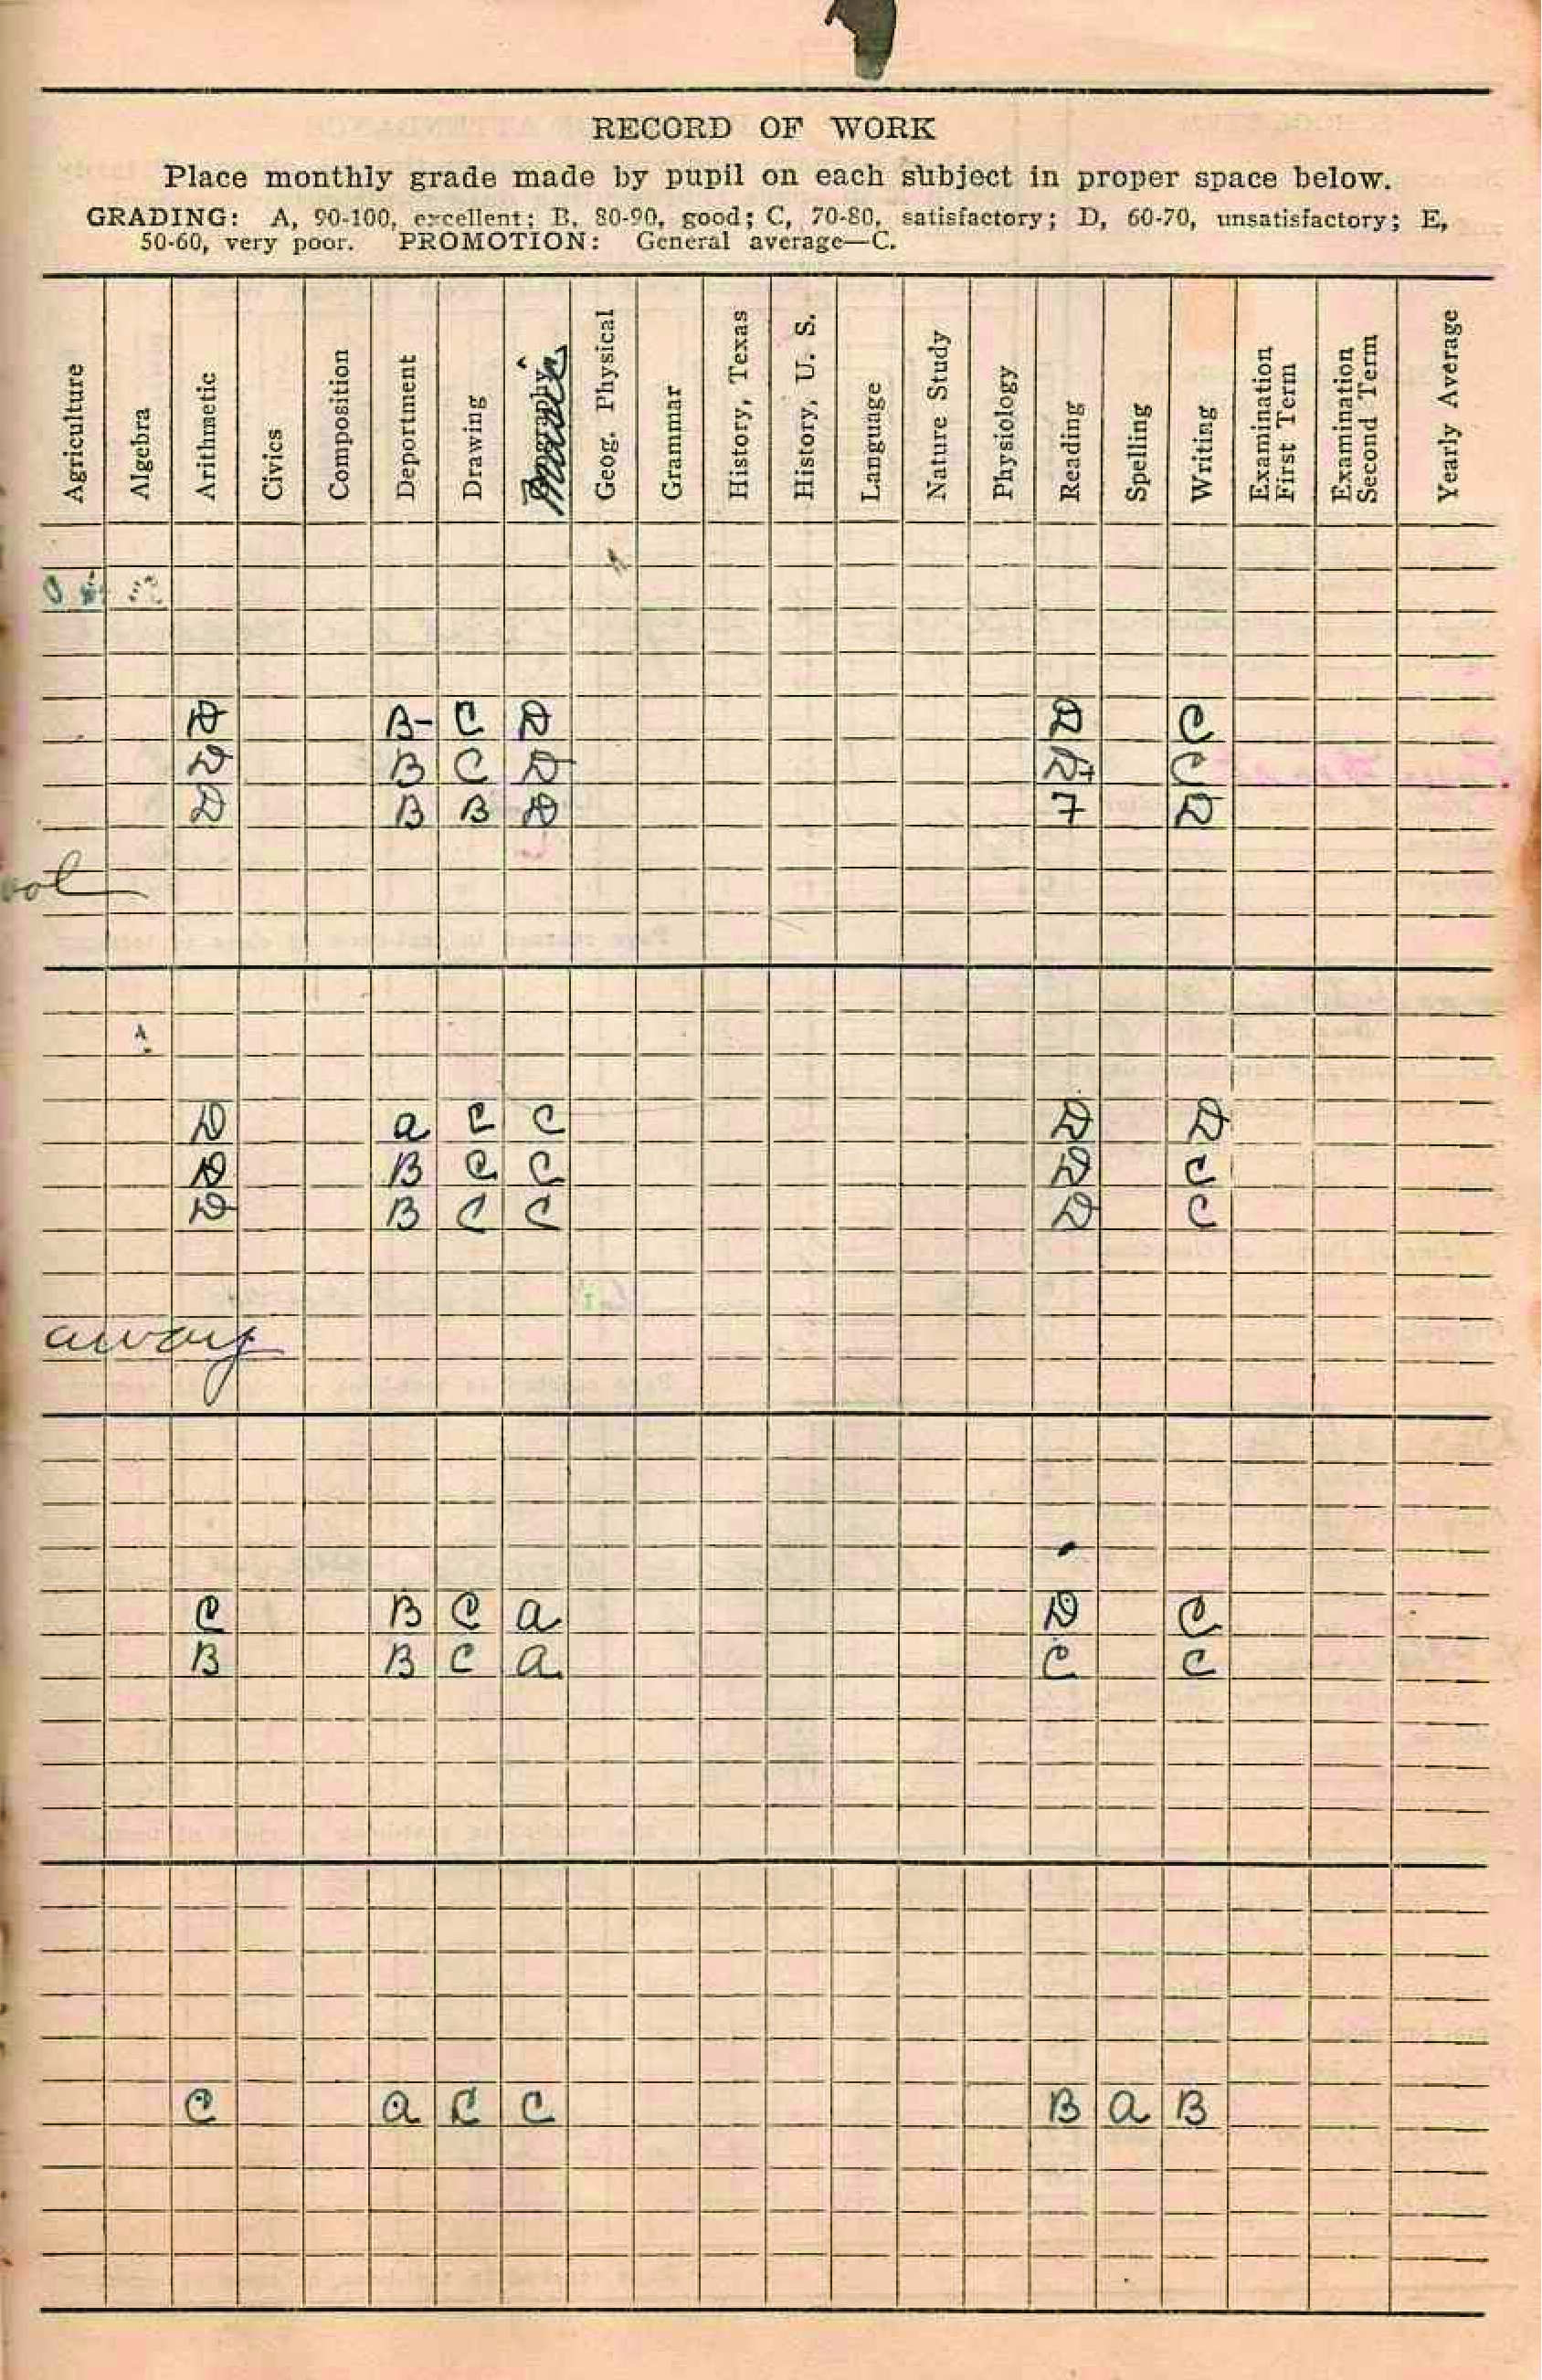 RECORD OF WORK
Place monthly grade made by pupil on each subject in proper space below.
GRADING: A, 90-100, excellent; B, 80-90, good; C, 70-80, satisfactory; D, 60-70, unsatisfactory; E,
50-60, very poor. PROMOTION: General average—C.
Agriculture
Algebra
Arithmetic
Civics
Composition
Deportment
Drawing
Music
Geog. Physical
Grammar
History, Texas
History, U. S.
Language
Nature Study
Physiology
Reading
Spelling
Writing
Examination
First Term
Examination
Second Term
Yearly Average
D B- C D D C
D B C D D+ C
D B B D 7 D
ool
D a C C D D
D B C C D C
D B C C D C
away
C B C a D C
B B C a C C
C a C C B a B